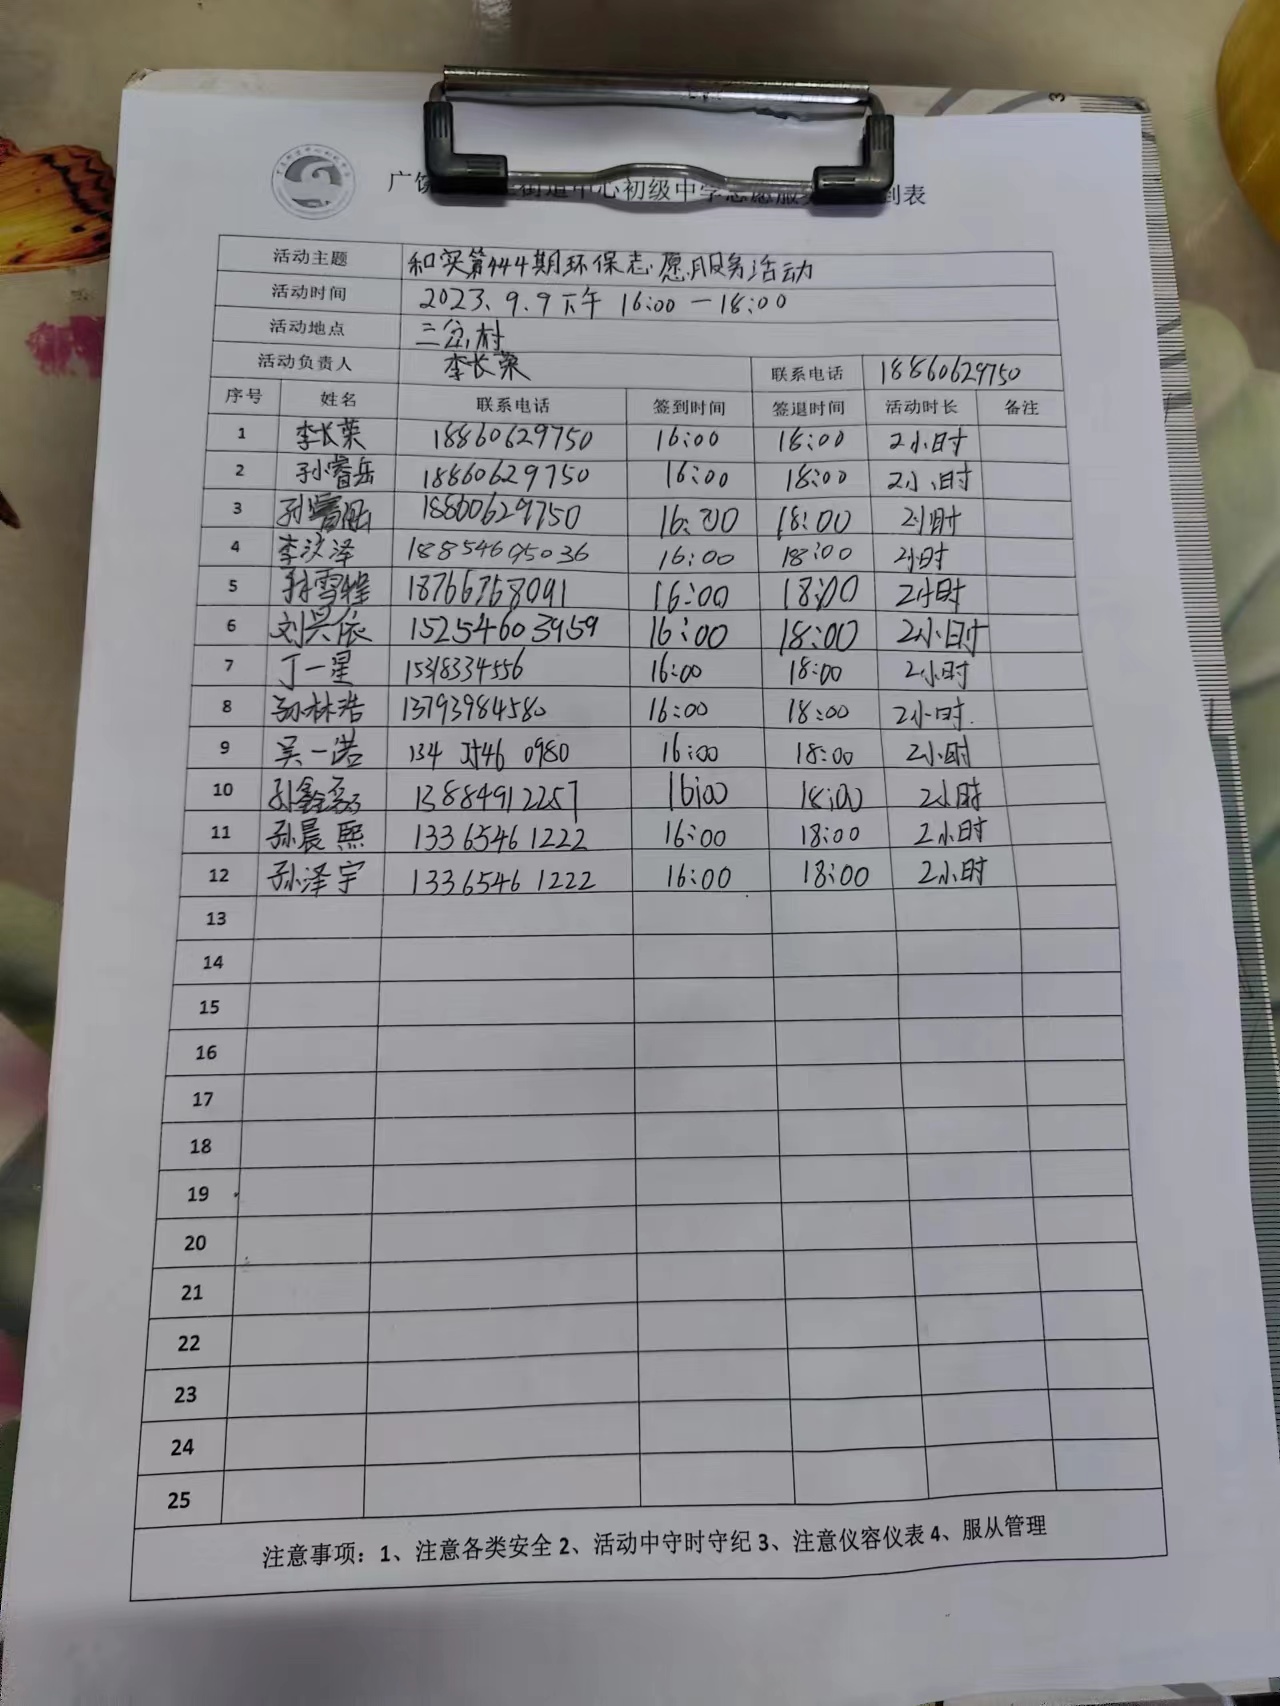 广饶 街道中心初级中学志愿服务 到表
活动主题 和实第444期环保志愿服务活动
活动时间 2023.9.9下午 16:00—18:00
活动地点 三岔村
活动负责人 李长荣 联系电话 18860629750
序号 姓名 联系电话 签到时间 签退时间 活动时长 备注
1 李长荣 18860629750 16:00 18:00 2小时
2 孙睿岳 18860629750 16:00 18:00 2小时
3 孙睿 18860629750 16:00 18:00 2小时
4 李汶泽 18854695036 16:00 18:00 2小时
5 孙雪 18766768091 16:00 18:00 2小时
6 刘昊依 15254603959 16:00 18:00 2小时
7 丁一星 15318334556 16:00 18:00 2小时
8 孙林浩 13793984580 16:00 18:00 2小时
9 吴一诺 134 0980 16:00 18:00 2小时
10 孙鑫磊 13884912257 16:00 18:00 2小时
11 孙晨熙 13365461222 16:00 18:00 2小时
12 孙泽宇 13365461222 16:00 18:00 2小时
13
14
15
16
17
18
19
20
21
22
23
24
25
注意事项：1、注意各类安全 2、活动中守时守纪 3、注意仪容仪表 4、服从管理